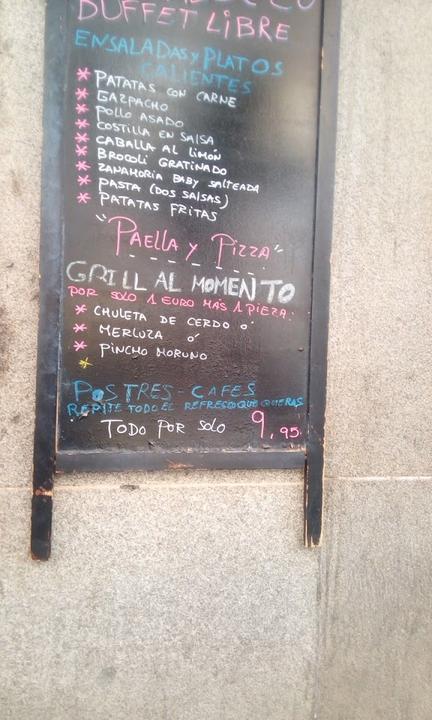 BUFFET LiBRE
ENSALADAS y PLATOS
CALIENTES
* PATATAS CON CARNE
* GAZPACHO
* POLLO ASADO
* COSTILLA EN SALSA
* CABALLA AL LIMÓN
* BROCOLI GRATINADO
* ZANAHORIA BABY SALTEADA
* PASTA (DOS SALSAS)
* PATATAS FRITAS
"PAELLA Y PIZZA"
GRILL AL MOMENTO
POR SOLO 1 EURO MÁS 1 PIEZA:
* CHULETA DE CERDO ó
* MERLUZA ó
* PINCHO MORUNO
*
POSTRES - CAFES
REPITE TODO EL REFRESCO QUE QUIERAS
TODO POR SOLO 9,95